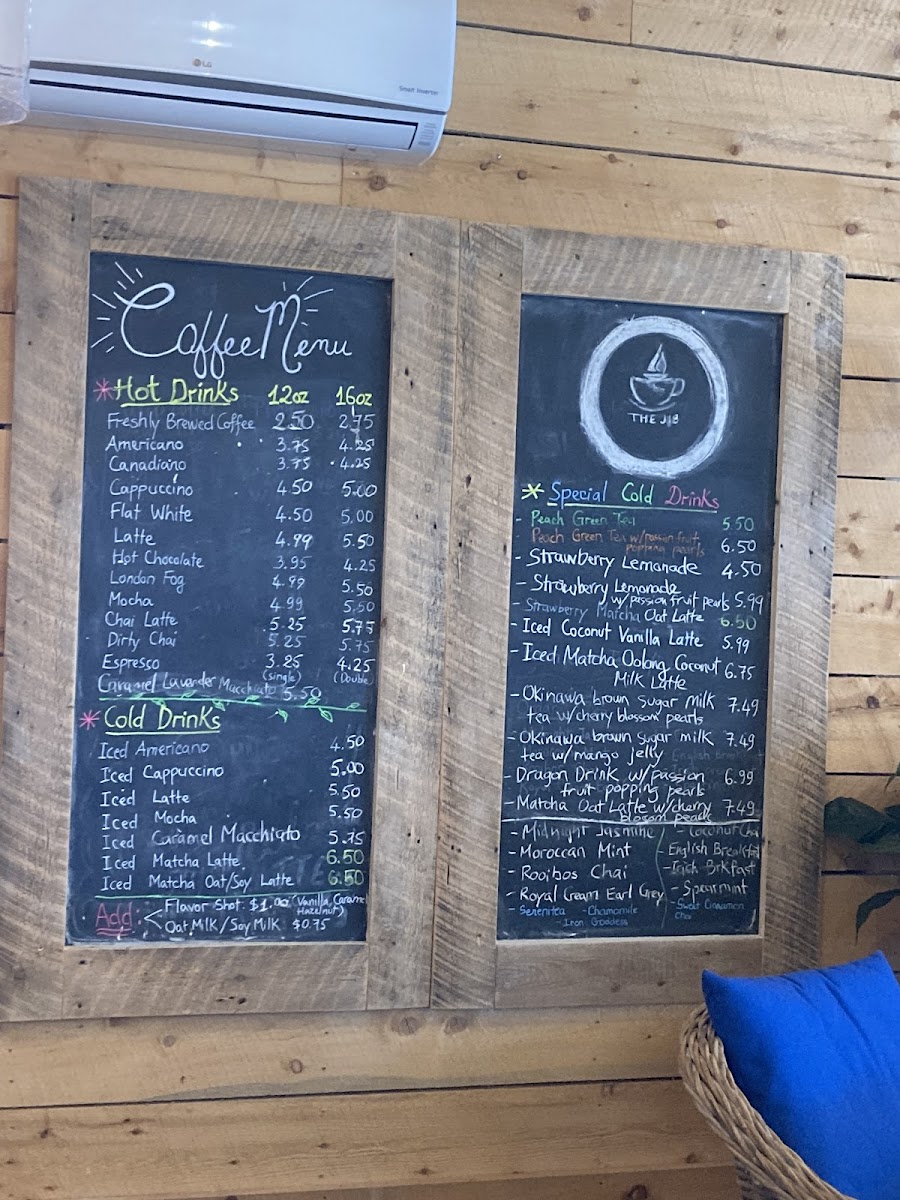 LG
Smart Inverter
Coffee Menu
Hot Drinks 12oz 16oz
Freshly Brewed Coffee 2.50 2.75
Americano 3.75 4.25
Canadiano 3.75 4.25
Cappuccino 4.50 5.00
Flat White 4.50 5.00
Latte 4.99 5.50
Hot Chocolate 3.95 4.25
London Fog 4.99 5.50
Mocha 4.99 5.50
Chai Latte 5.25 5.75
Dirty Chai 5.25 5.75
Espresso 3.25 4.25
(single) (Double)
Caramel Lavander Macchiato 5.50
Cold Drinks
Iced Americano 4.50
Iced Cappuccino 5.00
Iced Latte 5.50
Iced Mocha 5.50
Iced Caramel Macchiato 5.75
Iced Matcha Latte 6.50
Iced Matcha Oat/Soy Latte 6.50
Add: Flavor Shot $1.00 (Vanilla, Caramel
Hazelnut)
Oat Milk/Soy Milk $0.75
THE JIB
Special Cold Drinks
- Peach Green Tea 5.50
- Peach Green Tea w/passion fruit
popping pearls 6.50
- Strawberry Lemonade 4.50
- Strawberry Lemonade
w/passion fruit pearls 5.99
- Strawberry Matcha Oat Latte 6.50
- Iced Coconut Vanilla Latte 5.99
- Iced Matcha Oolong Coconut 6.75
Milk Latte
- Okinawa broun sugar milk 7.49
tea w/cherry blossom pearls
- Okinawa brown sugar milk 7.49
tea w/mango jelly
- Dragon Drink w/passion 6.99
fruit popping pearls
- Matcha Oat Latte w/cherry 7.49
blosom pearls
- Midnight Jasmine - Coconut Chai
- Moroccan Mint - English Breakfast
- Rooibos Chai - Irish Brkfast
- Royal Cream Earl Grey - Spearmint
- Serenitea - Chamomile - Sweet Cinnamon
Chai
- Iron Goddess